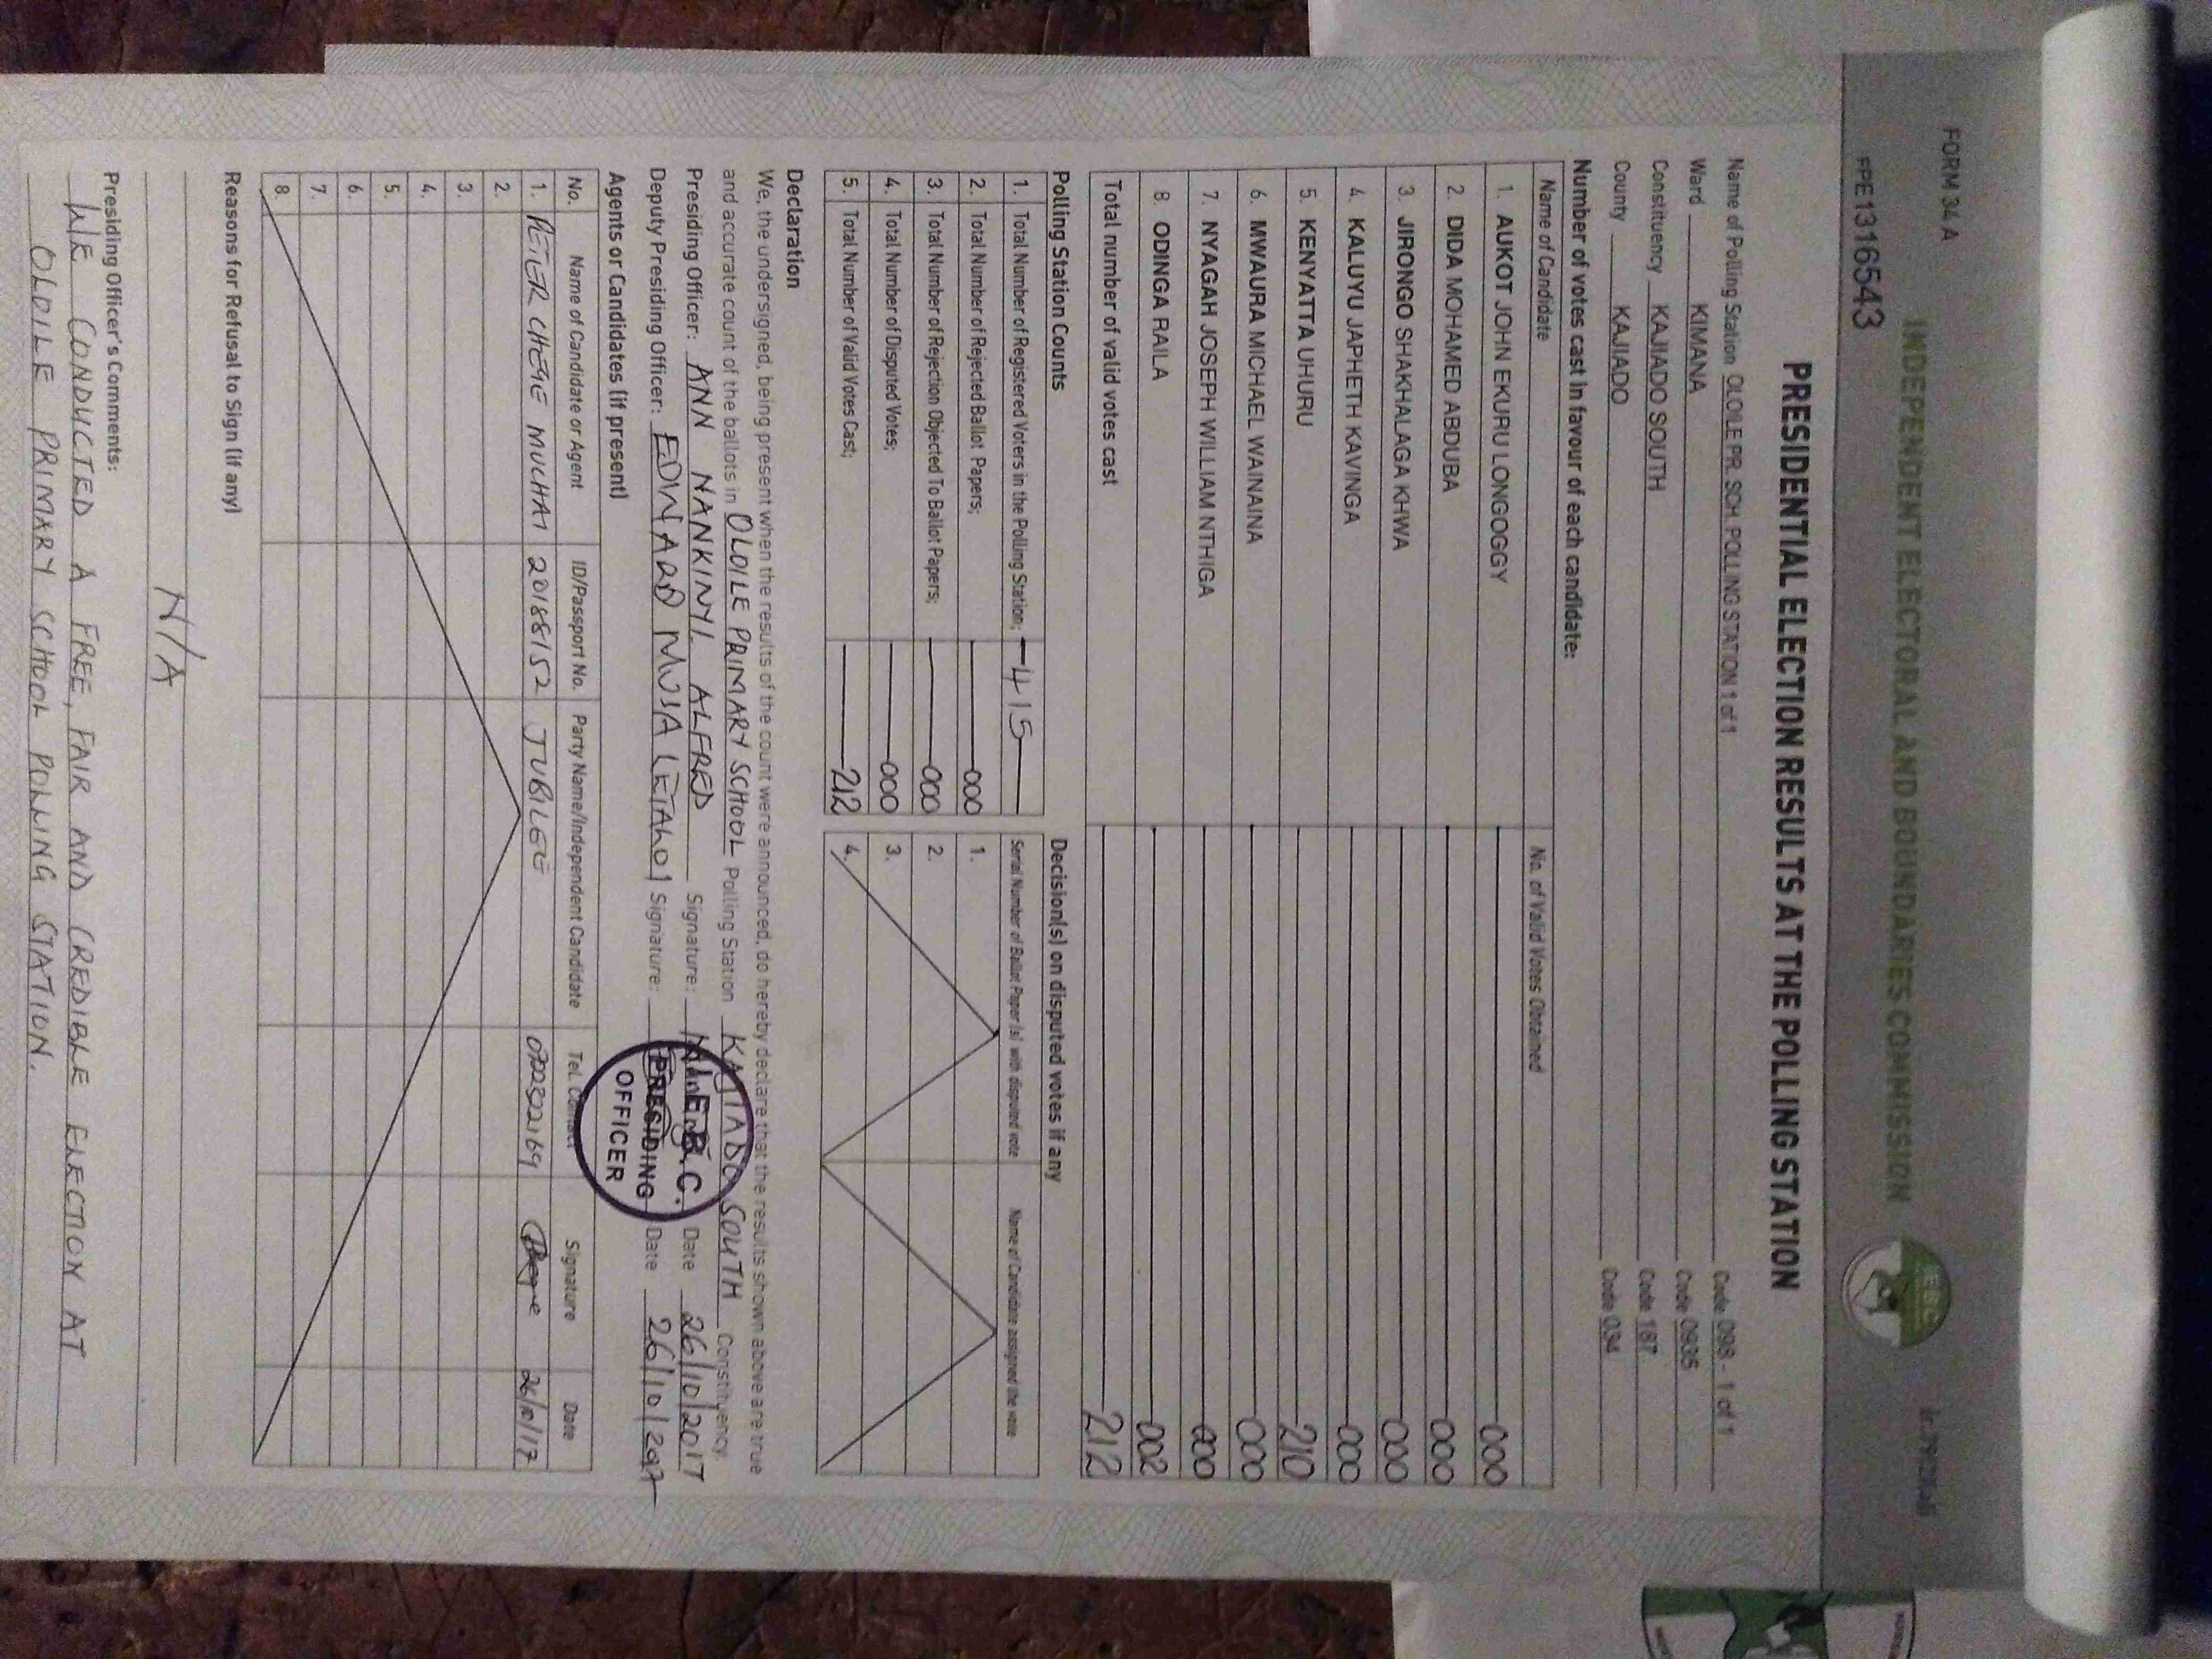 FORM 34 A
INDEPENDENT ELECTORAL AND BOUNDARIES COMMISSION
IEBC
PPE1316543
PRESIDENTIAL ELECTION RESULTS AT THE POLLING STATION
Name of Polling Station OLOILE PR. SCH. POLLING STATION 1 of 1 Code 098 - 1 of 1
Ward KIMANA Code 0935
Constituency KAJIADO SOUTH Code 187
County KAJIADO Code 034
Number of votes cast in favour of each candidate:
Name of Candidate No. of Valid Votes Obtained
1. AUKOT JOHN EKURU LONGOGGY 000
2. DIDA MOHAMED ABDUBA 000
3. JIRONGO SHAKHALAGA KHWA 000
4. KALUYU JAPHETH KAVINGA 000
5. KENYATTA UHURU 210
6. MWAURA MICHAEL WAINAINA 000
7. NYAGAH JOSEPH WILLIAM NTHIGA 000
8. ODINGA RAILA 002
Total number of valid votes cast 212
Polling Station Counts
1. Total Number of Registered Voters in the Polling Station; 415
2. Total Number of Rejected Ballot Papers; 000
3. Total Number of Rejection Objected To Ballot Papers; 000
4. Total Number of Disputed Votes; 000
5. Total Number of Valid Votes Cast; 212
Decision(s) on disputed votes if any
Serial Number of Ballot Paper (s) with disputed vote Name of Candidate assigned the vote
1.
2.
3.
4.
Declaration
We, the undersigned, being present when the results of the count were announced, do hereby declare that the results shown above are true
and accurate count of the ballots in OLOILE PRIMARY SCHOOL Polling Station KAJIADO SOUTH Constituency.
Presiding Officer: ANN NANKINYI ALFRED Signature: Date 26/10/2017
Deputy Presiding Officer: EDWARD MUSA Signature: Date 26/10/2017
I.E.B.C.
PRESIDING
OFFICER
Agents or Candidates (if present)
No. Name of Candidate or Agent ID/Passport No. Party Name/Independent Candidate Tel. Contact Signature Date
1. PETER CHEGE MUCHAI 20188152 JUBILEE 0722322169 26/10/17
2.
3.
4.
5.
6.
7.
8.
Reasons for Refusal to Sign (if any)
N/A
Presiding Officer's Comments:
WE CONDUCTED A FREE, FAIR AND CREDIBLE ELECTION AT
OLOILE PRIMARY SCHOOL POLLING STATION.